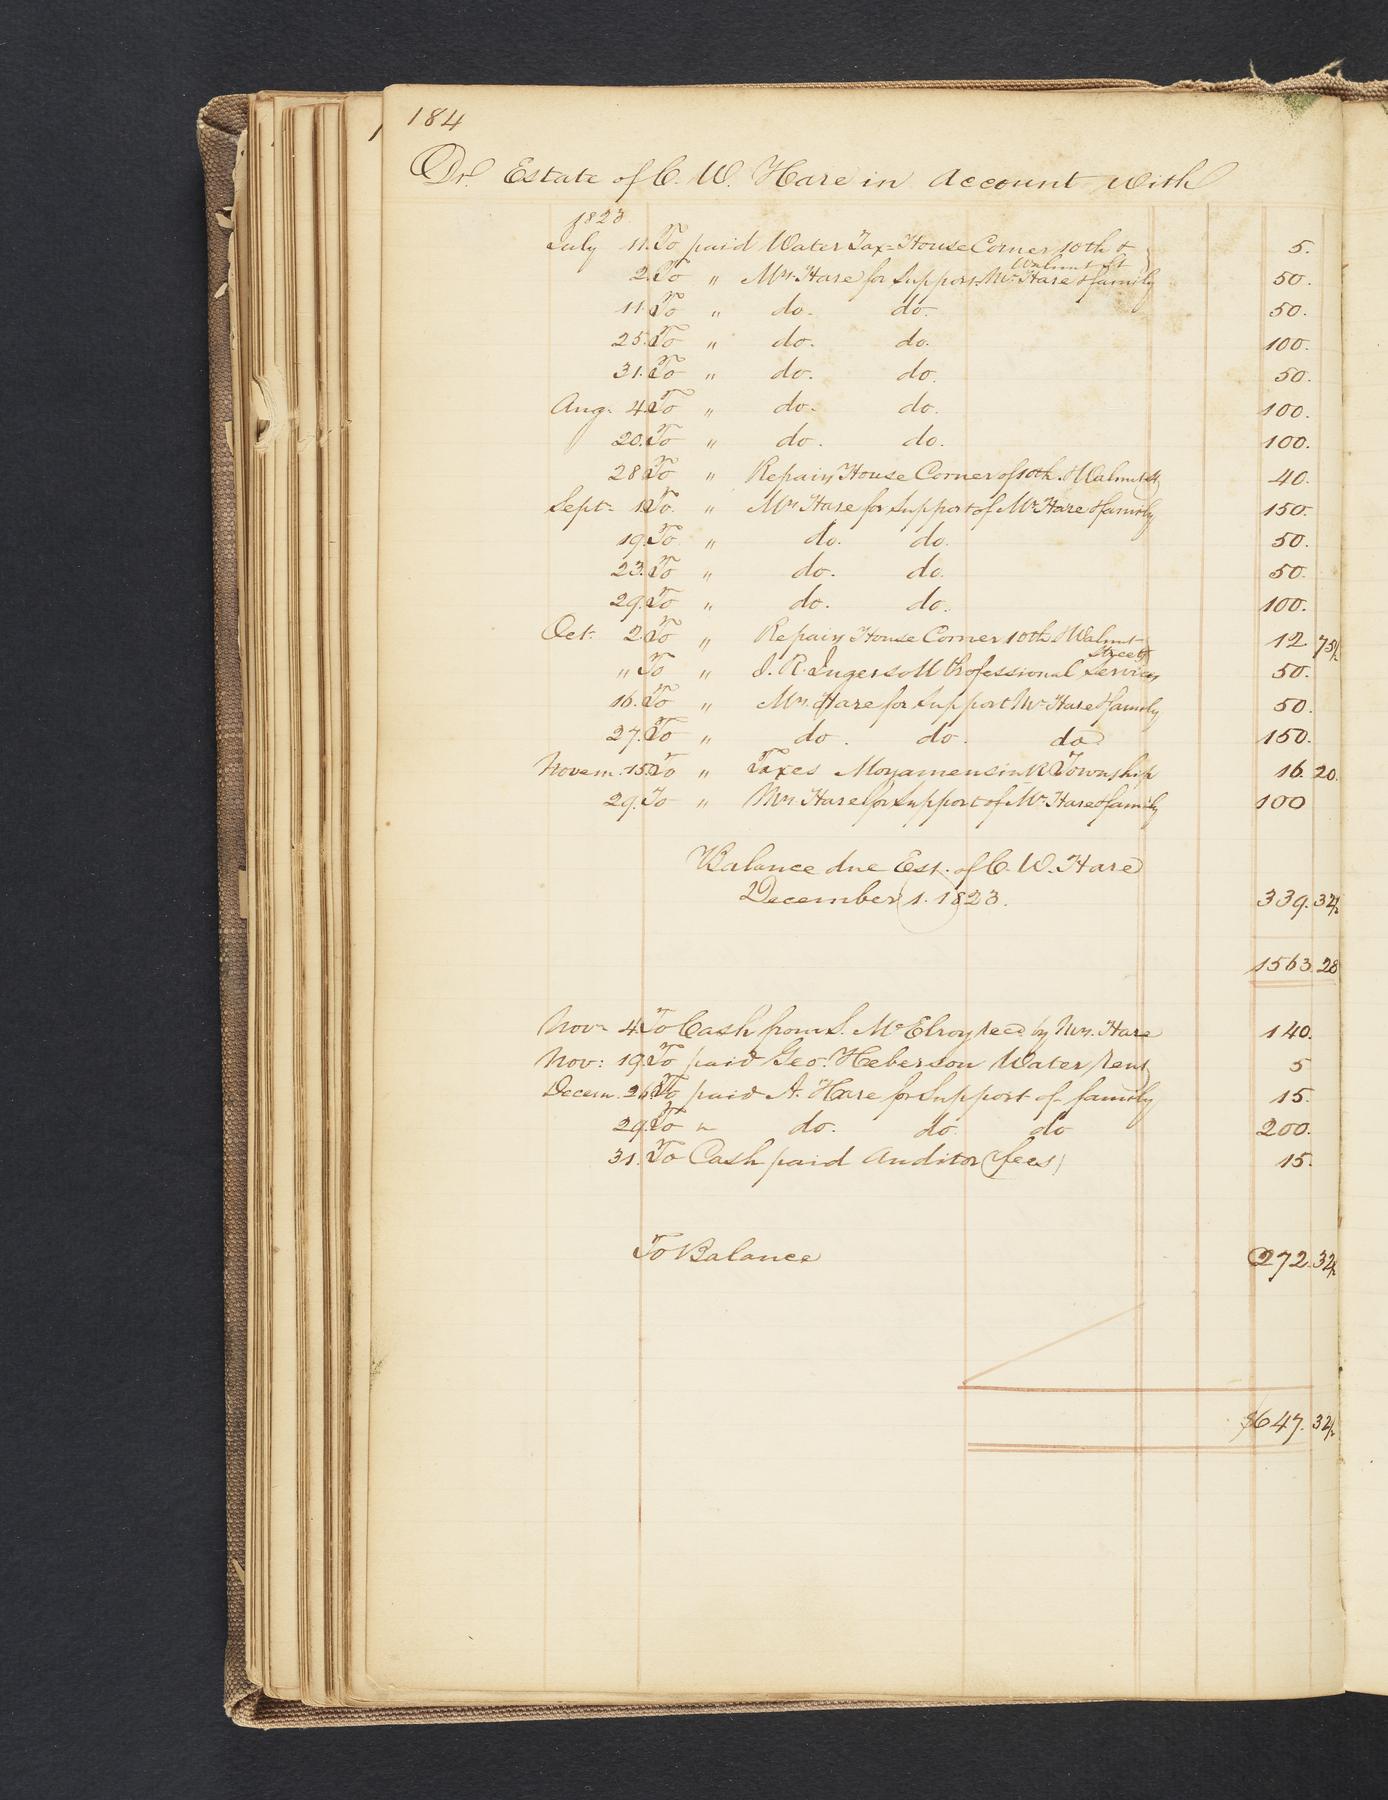 184
Dr. Estate of C. W. Hare in Account with
1823
July 11. To paid Water Tax = House Corner 10th &
Walnut St
2. To " Mrs. Hare for Support Mr. Hare & family 50.
5.
11. To " do. do. 50.
25. To " do. do. 100.
31. To " do. do. 50.
Aug. 4. To " do. do. 100.
20. To " do. do. 100.
28 To " Repairs House Corner of 10th & Walnut St 40.
Sept. 1. To " Mrs. Hare for Support of Mr. Hare & family 150.
19. To " do. do. 50.
23. To " do. do. 50.
29. To " do. do. 100.
Oct. 2. To " Repairs House Corner 10th & Walnut 12 75½
Street
" To " J. R. Ingersoll Professional Services 50.
16. To " Mrs. Hare for Support Mr. Hare & family 50.
27. To " do. do. do 150.
Novem. 15. To " Taxes Moyamensink Township 16. 20.
29. To " Mrs. Hare for Support of Mr. Hare & family 100
Balance due Est. of C. W. Hare
December 1. 1823. 339. 32½
1563. 28
Nov. 4. To Cash from S. McElroy recd by Mrs. Hare 140.
Nov: 19. To paid Geo. Heberson Water rent 5
Decem. 26. To paid A. Hare for Support of family 15.
29. To " do. do. do 200.
31. To Cash paid Auditor (fees) 15.
To Balance 272. 32½
$647. 32½